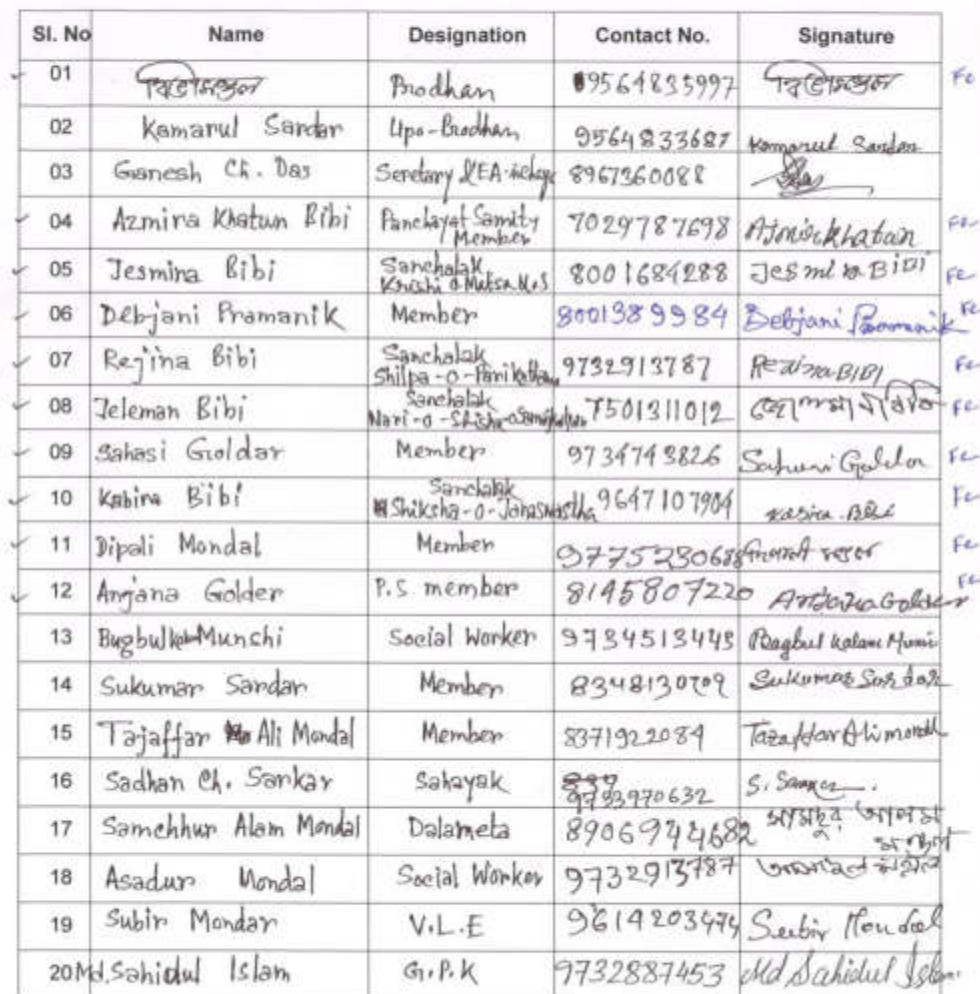 Sl. No Name Designation Contact No. Signature
01 Prodhan 9564835997 Fe
02 Kamarul Sardar Upo-Prodhan 9564833687 Kamarul Sardar
03 Ganesh Ch. Das 8967360088
04 Azmira Khatun Bibi Panchayat Samity Member 7029787698 Fe
05 Jesmina Bibi Sanchalak Krishi o Matsa 8001684288 Jesmina Bibi Fe
06 Debjani Pramanik Member 8001389984 Debjani Pramanik Fe
07 Rejina Bibi Sanchalak Shilpa-o- 9732913787 Rezina BIBI Fe
08 Jeleman Bibi Sanchalak Nari-o-Shishu-o 7501311012 Fe
09 Sahasi Goldar Member 9734743826 Fe
10 Kabira Bibi Sanchalak Shiksha-o-Janaswastha 9647107904 Fe
11 Dipali Mondal Member 9775230688 Fe
12 Anjana Golder P.S member 8145807220 Anjana Golder Fe
13 Munshi Social Worker 9734513445 Bagbul Kalam Munsi
14 Sukumar Sardar Member 8348130709 Sukumar Sardar
15 Tajaffar Ali Mondal Member 8371922084 Tazaffar Ali mondal
16 Sadhan Ch. Sarkar Sahayak 9733970632
17 Samchhur Alam Mondal Dalameta 8906944682
18 Asadur Mondal Social Worker 9732913787
19 Subir Mondar V.L.E 9614203474 Subir Mondal
20 Md. Sahidul Islam G.P.K 9732887453 Md Sahidul Islam